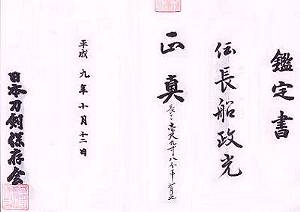 鑑定書
伝長船政光
正真
平成九年十月十二日
日本刀剣保存会